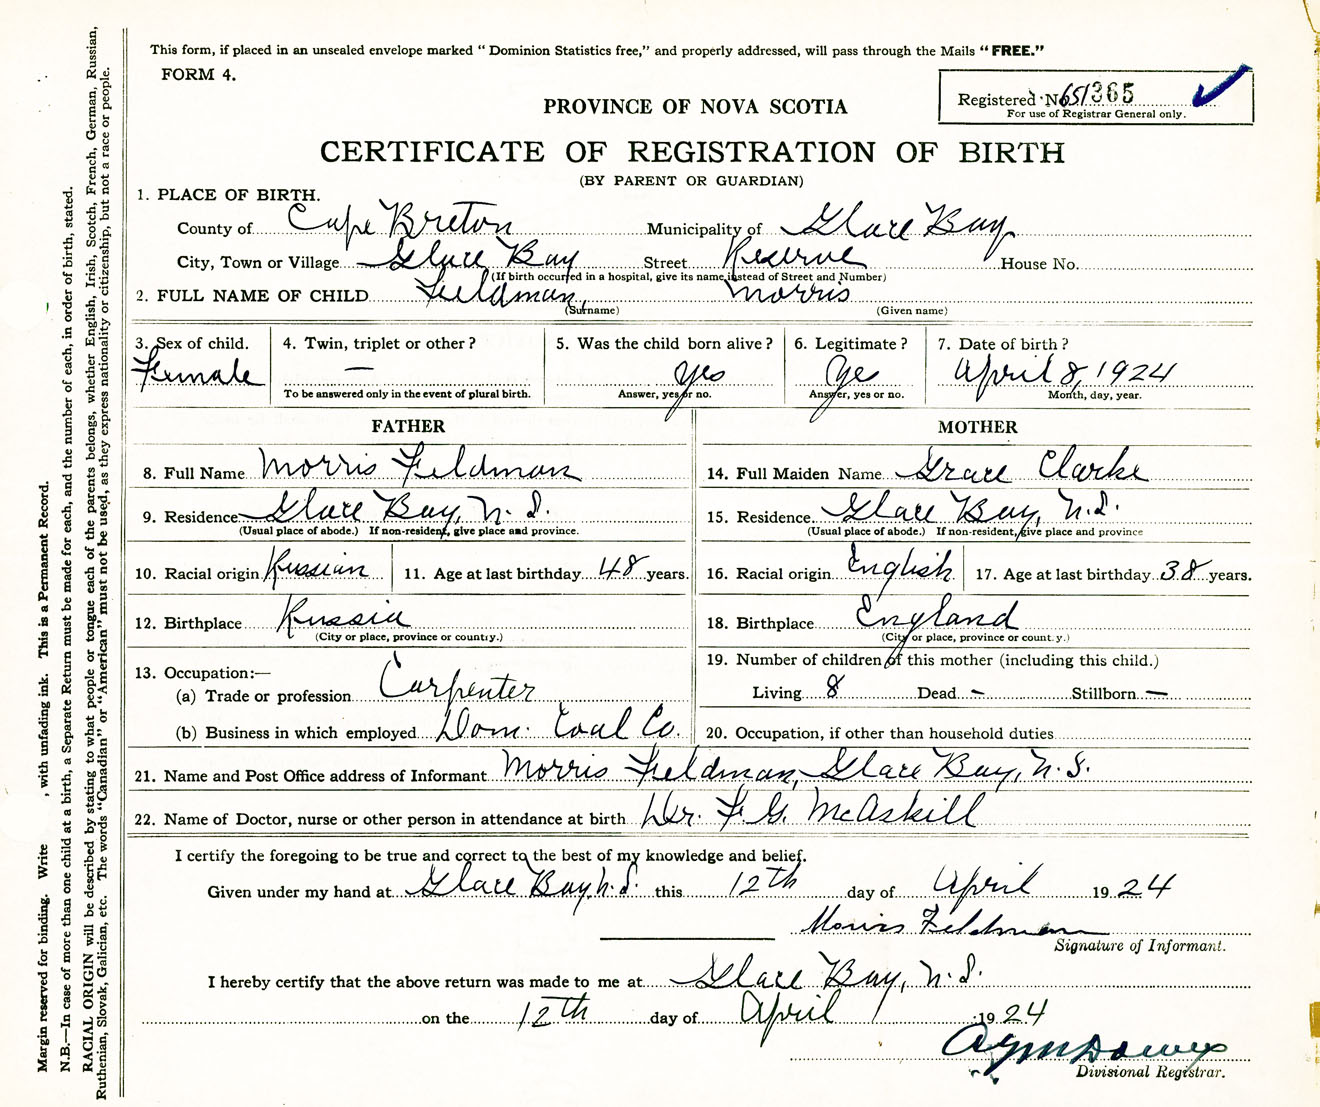 This form, if placed in an unsealed envelope marked “ Dominion Statistics free,” and properly addressed, will pass through the Mails “ FREE.”
FORM 4.
Registered No 651365
For use of Registrar General only.
PROVINCE OF NOVA SCOTIA
CERTIFICATE OF REGISTRATION OF BIRTH
(BY PARENT OR GUARDIAN)
1. PLACE OF BIRTH.
County of Cape Breton Municipality of Glace Bay
City, Town or Village Glace Bay Street Reserve House No.
(If birth occurred in a hospital, give its name instead of Street and Number)
2. FULL NAME OF CHILD Feldman, Morris
(Surname) (Given name)
3. Sex of child. 4. Twin, triplet or other ? 5. Was the child born alive ? 6. Legitimate ? 7. Date of birth ?
Female — yes Yes April 8, 1924
To be answered only in the event of plural birth. Answer, yes or no. Answer, yes or no. Month, day, year.
FATHER MOTHER
8. Full Name Morris Feldman 14. Full Maiden Name Grace Clarke
9. Residence Glace Bay, N.S. 15. Residence Glace Bay, N.S.
(Usual place of abode.) If non-resident, give place and province. (Usual place of abode.) If non-resident, give place and province
10. Racial origin Russian 11. Age at last birthday 48 years. 16. Racial origin English 17. Age at last birthday 38 years.
12. Birthplace Russia 18. Birthplace England
(City or place, province or country.) (City or place, province or country.)
13. Occupation:— 19. Number of children of this mother (including this child.)
(a) Trade or profession Carpenter Living 8 Dead – Stillborn —
(b) Business in which employed Dom. Coal Co. 20. Occupation, if other than household duties
21. Name and Post Office address of Informant Morris Feldman, Glace Bay, N.S.
22. Name of Doctor, nurse or other person in attendance at birth Dr. F. G. McAskill
I certify the foregoing to be true and correct to the best of my knowledge and belief.
Given under my hand at Glace Bay, N.S. this 12th day of April 1924
Morris Feldman
Signature of Informant.
I hereby certify that the above return was made to me at Glace Bay, N.S.
on the 12th day of April 1924
Divisional Registrar.
Margin reserved for binding. Write , with unfading ink. This is a Permanent Record.
N.B.—In case of more than one child at a birth, a Separate Return must be made for each, and the number of each, in order of birth, stated.
RACIAL ORIGIN will be described by stating to what people or tongue each of the parents belongs, whether English, Irish, Scotch, French, German, Russian,
Ruthenian, Slovak, Galician, etc. The words “Canadian” or “American” must not be used, as they express nationality or citizenship, but not a race or people.